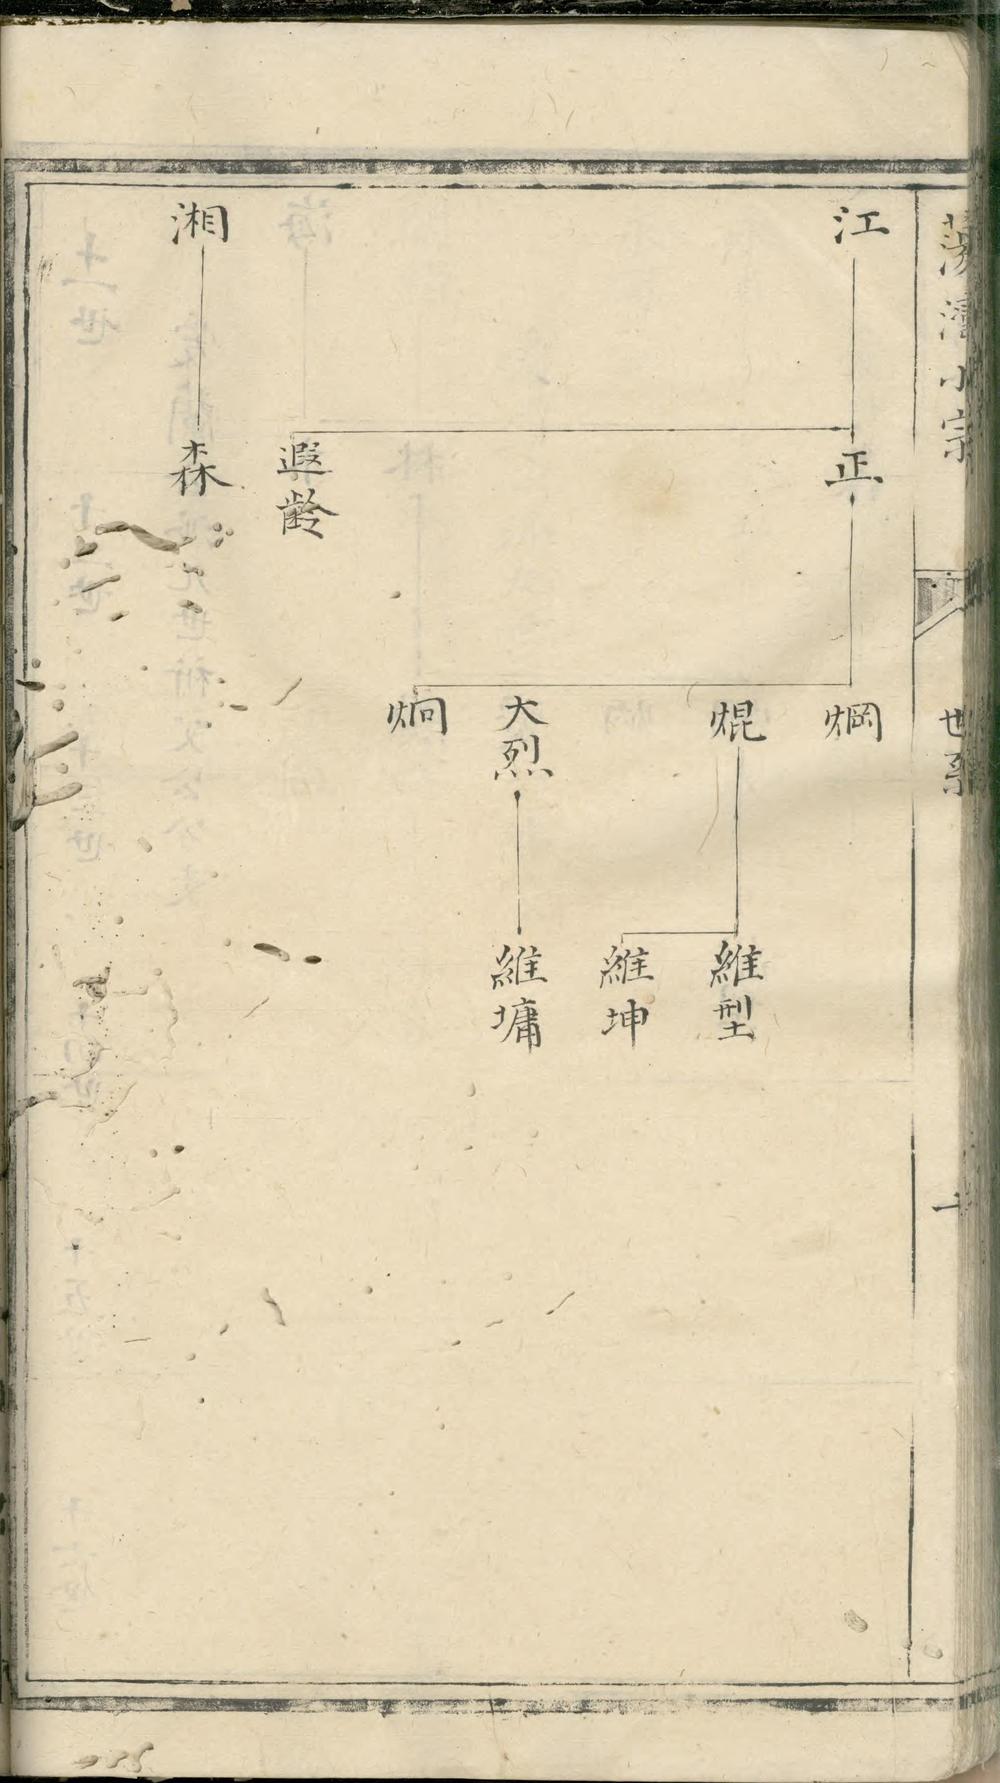 小宗
世系
江
湘
正
遐齡
森
焵
焜
大烈
炯
維型
維坤
維墉